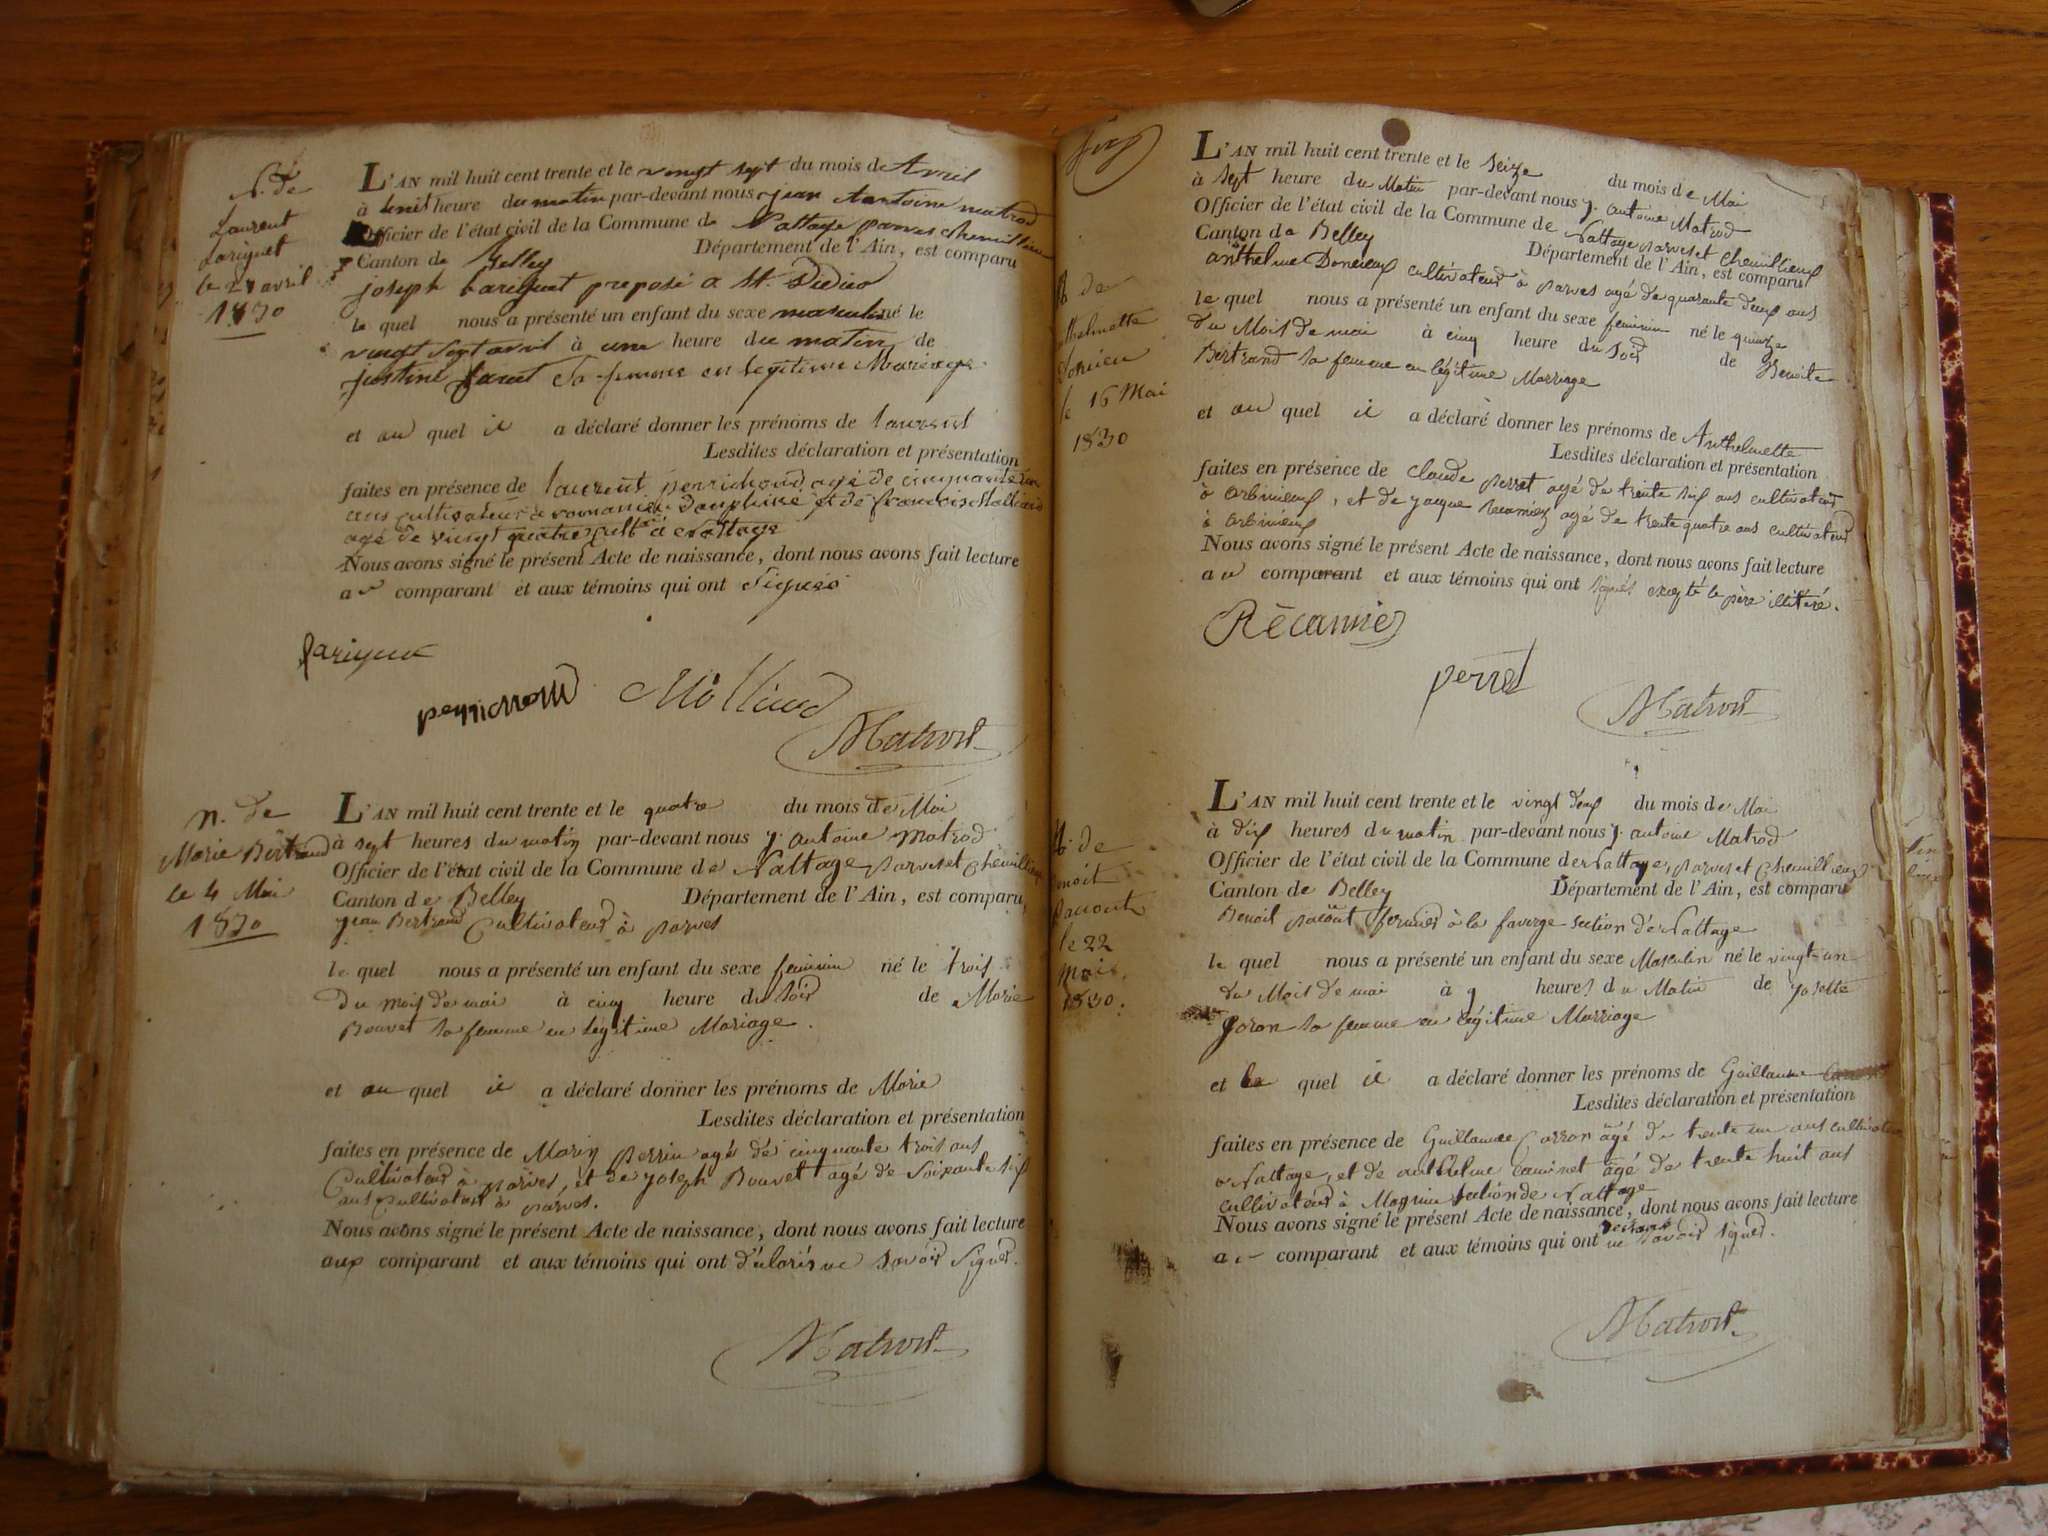 N. de
Laurent
Lariguet
le 27 avril
1830
L'AN mil huit cent trente et le vingt sept du mois de Avril
à heure du matin par-devant nous jean Antoine matrod
Officier de l'état civil de la Commune de Nattage parves chemillieu
Canton de Belley Département de l'Ain, est comparu
joseph Lariguet preposé a St. Didier
le quel nous a présenté un enfant du sexe masculin né le
vingt sept avril à une heure du matin de
justine sa femme en legitime Mariage
et au quel il a déclaré donner les prénoms de laurent
Lesdites déclaration et présentation
faites en présence de laurent perrichond agé de cinquante
ans cultivateur a dauphiné et de francois Molliand
agé de vingt quatre cult. à Nattage
Nous avons signé le présent Acte de naissance, dont nous avons fait lecture
au comparant et aux témoins qui ont Signés
Lariguet
perrichond Molliand
Matrod
n. de
Marie Bertrand
le 4 Mai
1830
L'AN mil huit cent trente et le quatre du mois de Mai
à sept heures du matin par-devant nous j. antoine Matrod
Officier de l'état civil de la Commune de Nattage, parves et chemillieux
Canton de Belley Département de l'Ain, est comparu
jean Bertrand Cultivateur à parves
le quel nous a présenté un enfant du sexe feminin né le trois
du mois de mai à cinq heure du soir de Marie
Bouvet sa femme en légitime Mariage.
et au quel il a déclaré donner les prénoms de Marie
Lesdites déclaration et présentation
faites en présence de Marin perrin agé de cinquante trois ans
Cultivateur à parves, et de joseph Bouvet agé de soixante six
ans cultivateur à parves.
Nous avons signé le présent Acte de naissance, dont nous avons fait lecture
aux comparant et aux témoins qui ont déclarés ne savoir signer.
Matrod
N. de
thelmette
Donieu
le 16 Mai
1830
L'AN mil huit cent trente et le seize du mois de Mai
à sept heure du Matin par-devant nous j. antoine Matrod
Officier de l'état civil de la Commune de Nattage parves et chemillieux
Canton de Belley Département de l'Ain, est comparu
anthelme Donieux cultivateur à parves agé de quarante deux ans
le quel nous a présenté un enfant du sexe feminin né le quinze
du Mois de mai à cinq heure du soir de Benoite
Bertrand sa femme en légitime Marriage
et au quel il a déclaré donner les prénoms de Anthelmette
Lesdites déclaration et présentation
faites en présence de claude perret agé de trente six ans cultivateur
à arbinieux, et de jacque recamiez agé de trente quatre ans cultivateur
à arbinieux
Nous avons signé le présent Acte de naissance, dont nous avons fait lecture
au comparant et aux témoins qui ont signés excepté le père illitéré.
Récamiez
perret
Matrod
N. de
enoit
pacout
le 22
Mai.
1830.
L'AN mil huit cent trente et le vingt deux du mois de Mai
à dix heures du matin par-devant nous j. antoine Matrod
Officier de l'état civil de la Commune de Nattage, parves et chemillieux
Canton de Belley Département de l'Ain, est comparu
Benoit pacout fermier à la faverge section de Nattage
le quel nous a présenté un enfant du sexe Masculin né le vingt-un
du Mois de mai à 9 heures du Matin de josette
goron sa femme en légitime Marriage
et le quel il a déclaré donner les prénoms de Guillaume
Lesdites déclaration et présentation
faites en présence de Guillaume Carron agé de trente un ans cultivateur
a Nattage, et de anthelme caminet agé de trente huit ans
cultivateur à section de Nattage
Nous avons signé le présent Acte de naissance, dont nous avons fait lecture
au comparant et aux témoins qui ont ne savoir signer.
Matrod